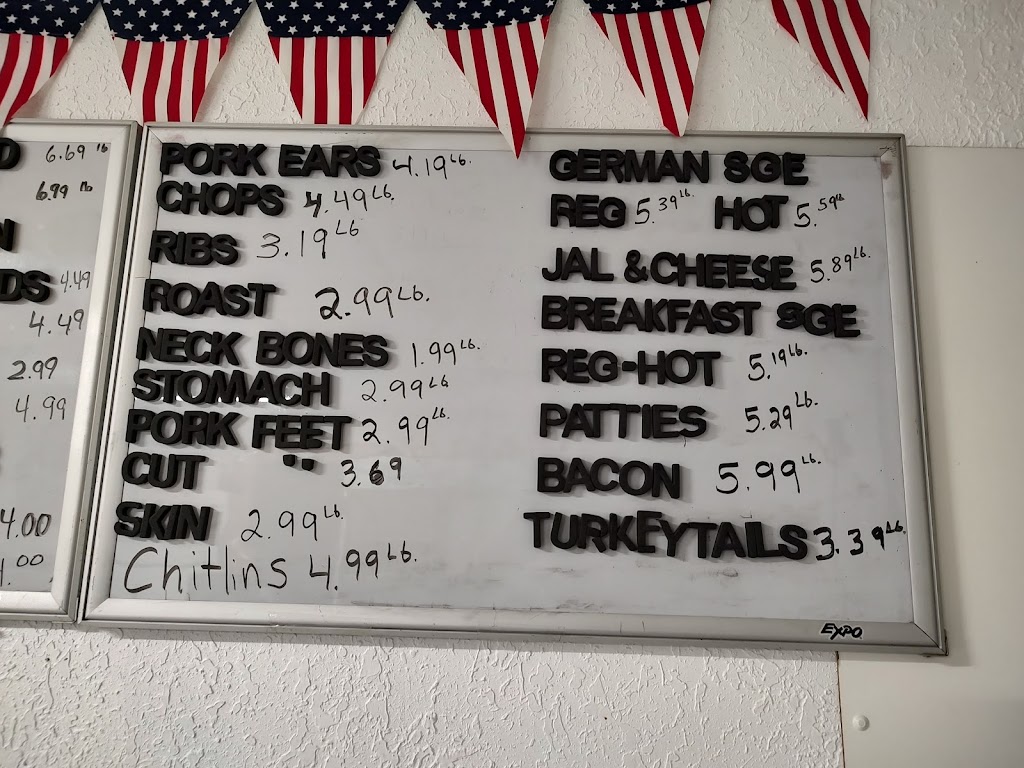 D 6.69 lb
6.99 lb
N
DS 4.49
4.49
2.99
4.99
4.00
.00
PORK EARS 4.19 Lb.
CHOPS 4.49 Lb.
RIBS 3.19 Lb
ROAST 2.99 Lb.
NECK BONES 1.99 Lb.
STOMACH 2.99 Lb
PORK FEET 2.99 Lb.
CUT " 3.69
SKIN 2.99 Lb.
Chitlins 4.99 Lb.
GERMAN SGE
REG 5.39 Lb. HOT 5.59 Lb
JAL & CHEESE 5.89 Lb.
BREAKFAST SGE
REG-HOT 5.19 Lb.
PATTIES 5.29 Lb.
BACON 5.99 Lb.
TURKEYTAILS 3.39 Lb.
EXPO